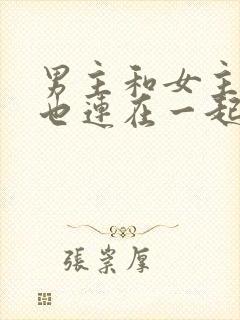 男主和女主
也連在一起
張崇厚